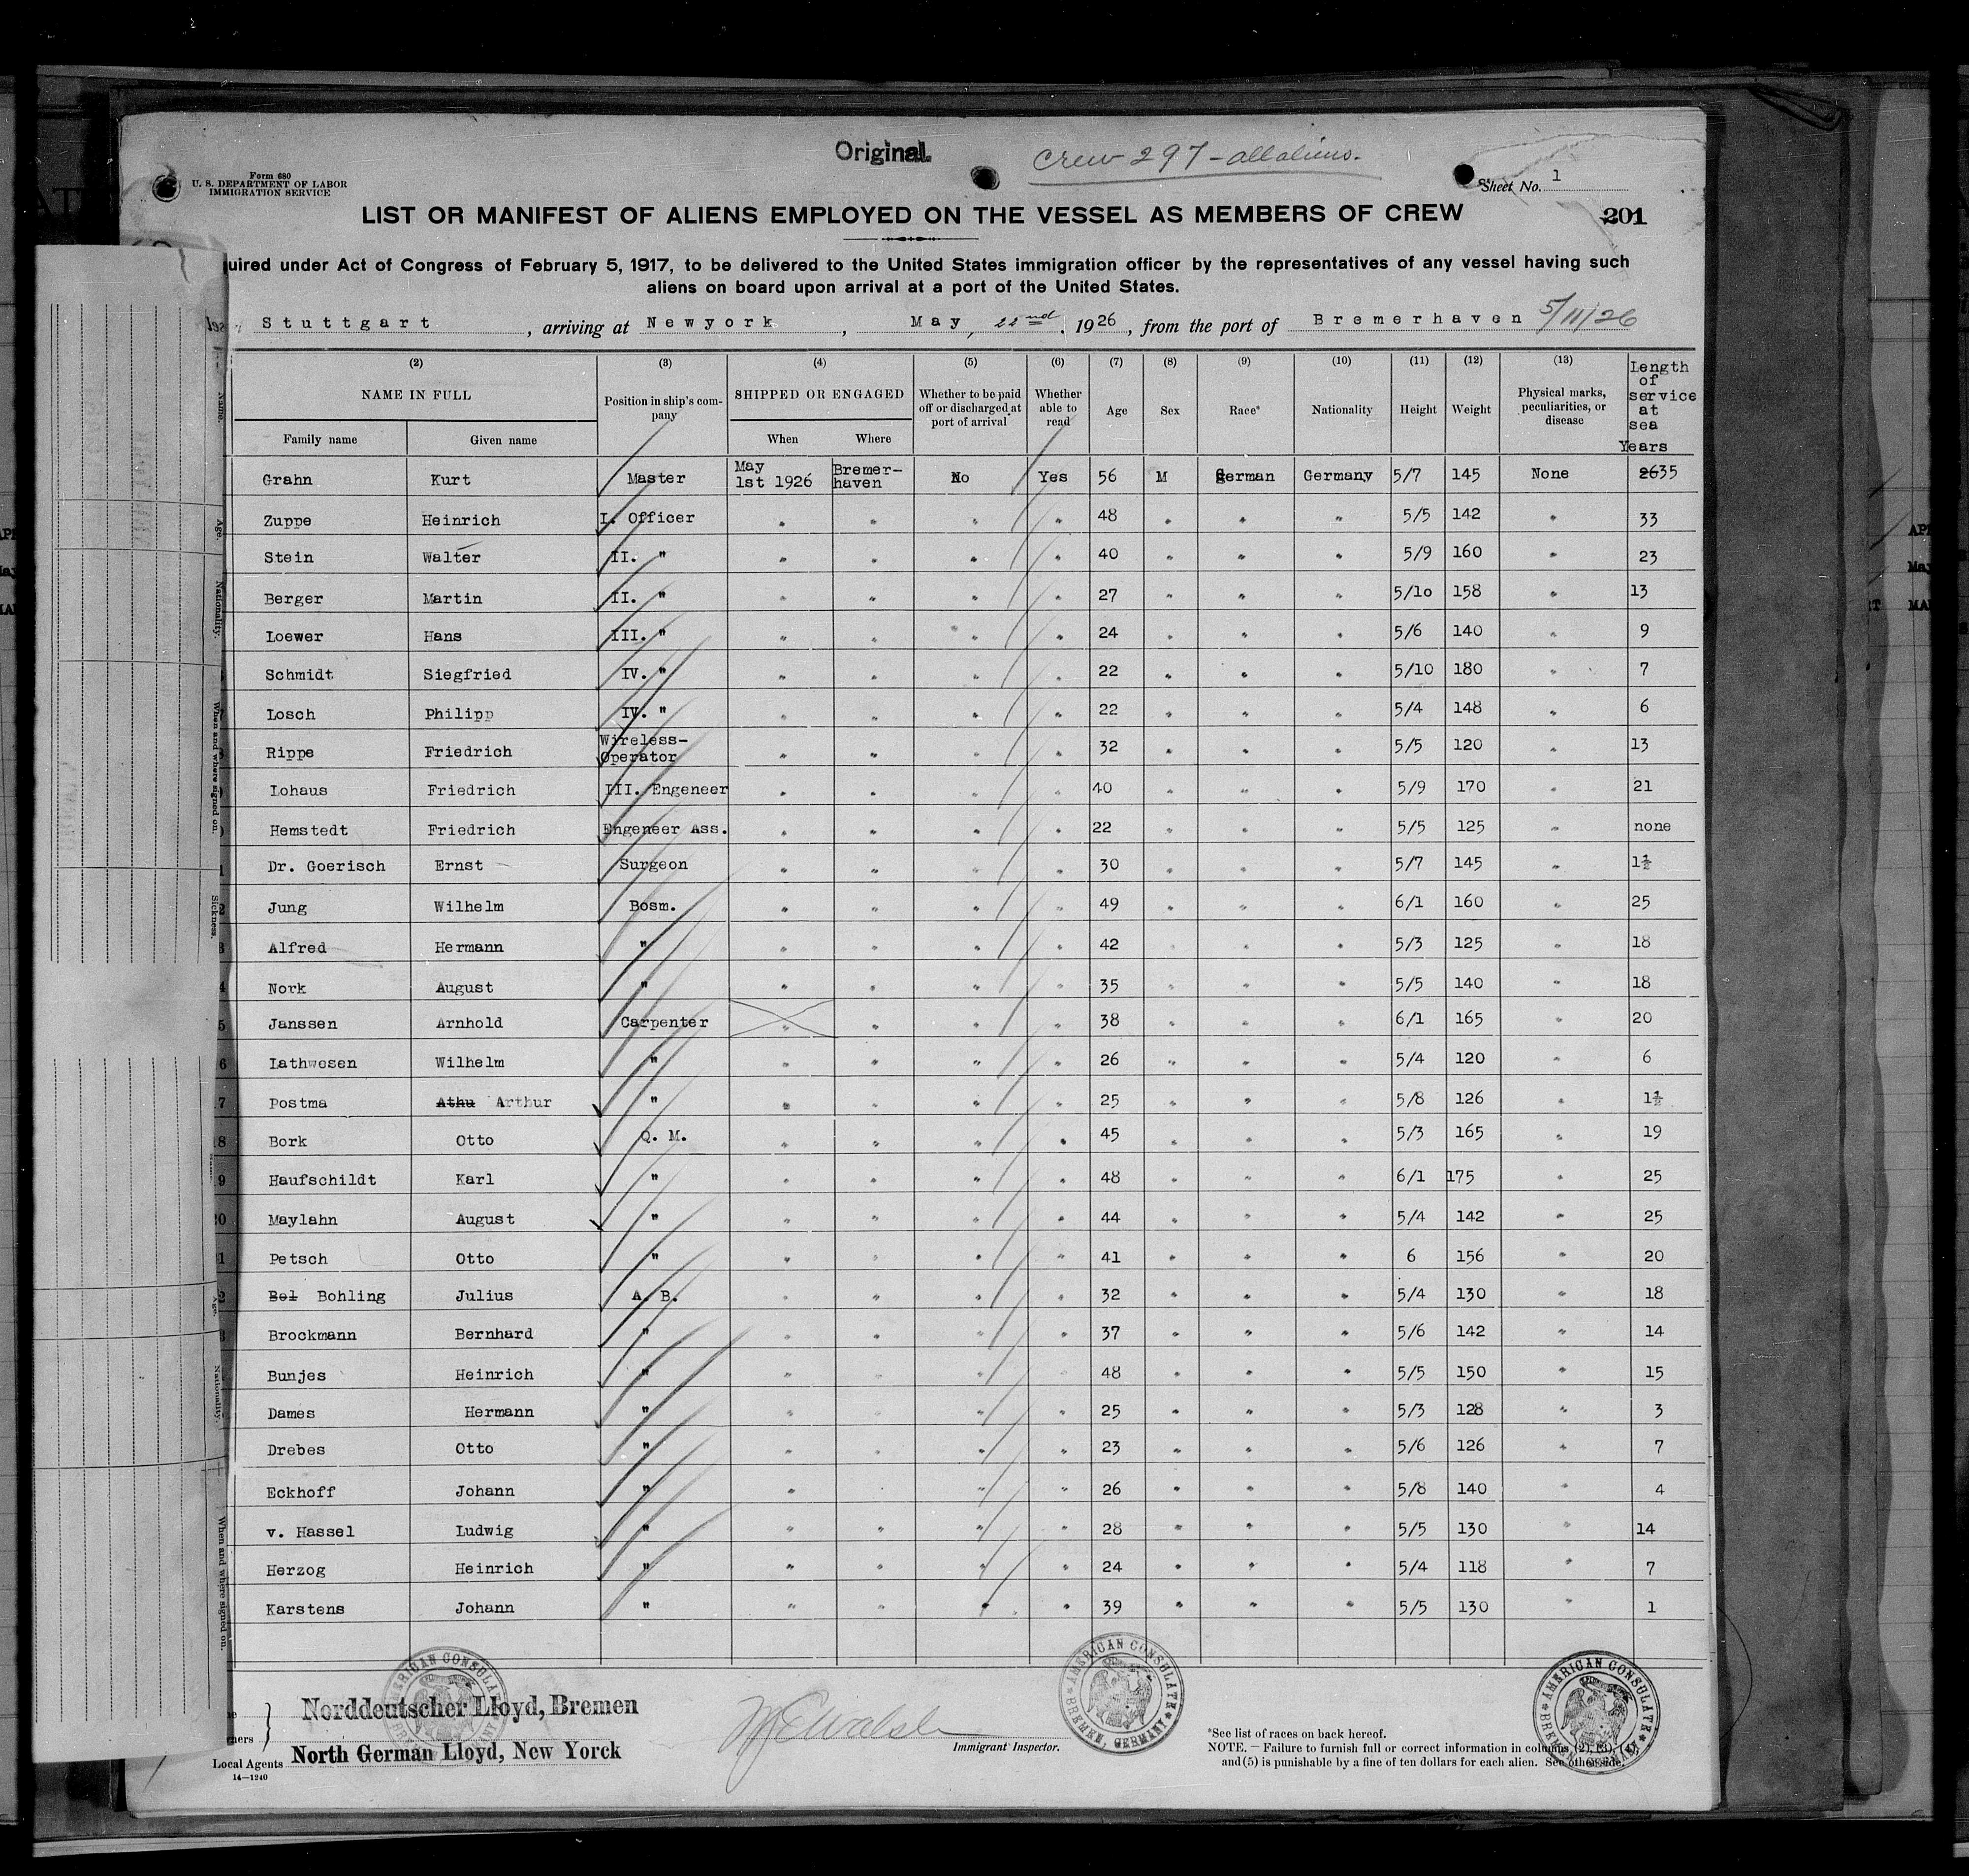 Original
Crew 297 - all aliens.
Form 680
U. S. DEPARTMENT OF LABOR
IMMIGRATION SERVICE
Sheet No. 1
LIST OR MANIFEST OF ALIENS EMPLOYED ON THE VESSEL AS MEMBERS OF CREW
201
uired under Act of Congress of February 5, 1917, to be delivered to the United States immigration officer by the representatives of any vessel having such
aliens on board upon arrival at a port of the United States.
Stuttgart, arriving at Newyork, May, 22nd, 1926, from the port of Bremerhaven 5/11/26
(2) (3) (4) (5) (6) (7) (8) (9) (10) (11) (12) (13)
NAME IN FULL
Family name Given name
Position in ship's company
SHIPPED OR ENGAGED
When Where
Whether to be paid off or discharged at port of arrival
Whether able to read
Age Sex Race* Nationality Height Weight
Physical marks, peculiarities, or disease
Length of service at sea Years
Grahn Kurt Master May 1st 1926 Bremer-haven No Yes 56 M German Germany 5/7 145 None 2635
Zuppe Heinrich I. Officer " " " " 48 " " " 5/5 142 " 33
Stein Walter II. " " " " " 40 " " " 5/9 160 " 23
Berger Martin II. " " " " " 27 " " " 5/10 158 " 13
Loewer Hans III. " " " " " 24 " " " 5/6 140 " 9
Schmidt Siegfried IV. " " " " " 22 " " " 5/10 180 " 7
Losch Philipp IV. " " " " " 22 " " " 5/4 148 " 6
Rippe Friedrich Wireless-Operator " " " " 32 " " " 5/5 120 " 13
Lohaus Friedrich III. Engeneer " " " " 40 " " " 5/9 170 " 21
Hemstedt Friedrich Engeneer Ass. " " " " 22 " " " 5/5 125 " none
Dr. Goerisch Ernst Surgeon " " " " 30 " " " 5/7 145 " 1½
Jung Wilhelm Bosm. " " " " 49 " " " 6/1 160 " 25
Alfred Hermann " " " " " 42 " " " 5/3 125 " 18
Nork August " " " " " 35 " " " 5/5 140 " 18
Janssen Arnhold Carpenter " " " " 38 " " " 6/1 165 " 20
Lathwesen Wilhelm " " " " " 26 " " " 5/4 120 " 6
Postma Athu Arthur " " " " " 25 " " " 5/8 126 " 1½
Bork Otto Q. M. " " " " 45 " " " 5/3 165 " 19
Haufschildt Karl " " " " " 48 " " " 6/1 175 " 25
Maylahn August " " " " " 44 " " " 5/4 142 " 25
Petsch Otto " " " " " 41 " " " 6 156 " 20
Bol Bohling Julius A. B. " " " " 32 " " " 5/4 130 " 18
Brockmann Bernhard " " " " " 37 " " " 5/6 142 " 14
Bunjes Heinrich " " " " " 48 " " " 5/5 150 " 15
Dames Hermann " " " " " 25 " " " 5/3 128 " 3
Drebes Otto " " " " " 23 " " " 5/6 126 " 7
Eckhoff Johann " " " " 26 " " " 5/8 140 " 4
v. Hassel Ludwig " " " " " 28 " " " 5/5 130 " 14
Herzog Heinrich " " " " " 24 " " " 5/4 118 " 7
Karstens Johann " " " " " 39 " " " 5/5 130 " 1
AMERICAN CONSULATE
Norddeutscher Lloyd, Bremen
Local Agents North German Lloyd, New Yorck
14—1240
Immigrant Inspector.
AMERICAN CONSULATE BREMEN, GERMANY
*See list of races on back hereof.
NOTE. — Failure to furnish full or correct information in columns (2), (3), (4),
and (5) is punishable by a fine of ten dollars for each alien. See other side.
AMERICAN CONSULATE BREMEN, GERMANY
Name.
Age.
Nationality.
When and where signed on.
Sickness.
Age.
Nationality.
When and where signed on.